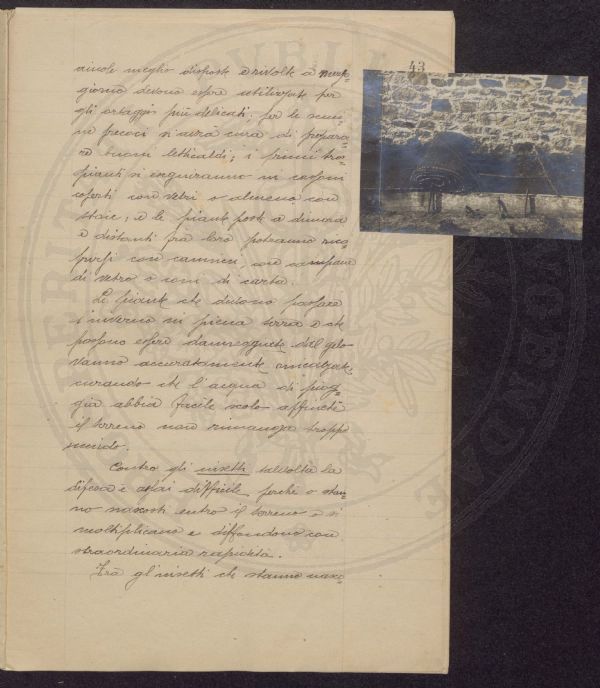 43
aiuole meglio disposte e rivolte a mezzo-
giorno devono essere utilizzate per
gli ortaggi più delicati; per le semi-
ne precoci si avrà cura di prepara-
re buoni letticaldi; i primi tra-
pianti si eseguiranno in cassoni
coperti con vetri o almeno con
stuoie; e le piante poste a dimora
e distanti fra loro potranno
con campane
di vetro o coni di carta.
Le piante che devono passare
l'inverno in piena terra e che
possono essere danneggiate dal gelo
vanno accuratamente rincalzate,
curando che l'acqua di piog-
gia abbia facile scolo affinché
il terreno non rimanga troppo
umido.
Contro gli insetti talvolta la
difesa è assai difficile perché o stan-
no nascosti entro il terreno o si
moltiplicano e diffondono con
straordinaria rapidità.
Fra gl'insetti che stanno nasco-